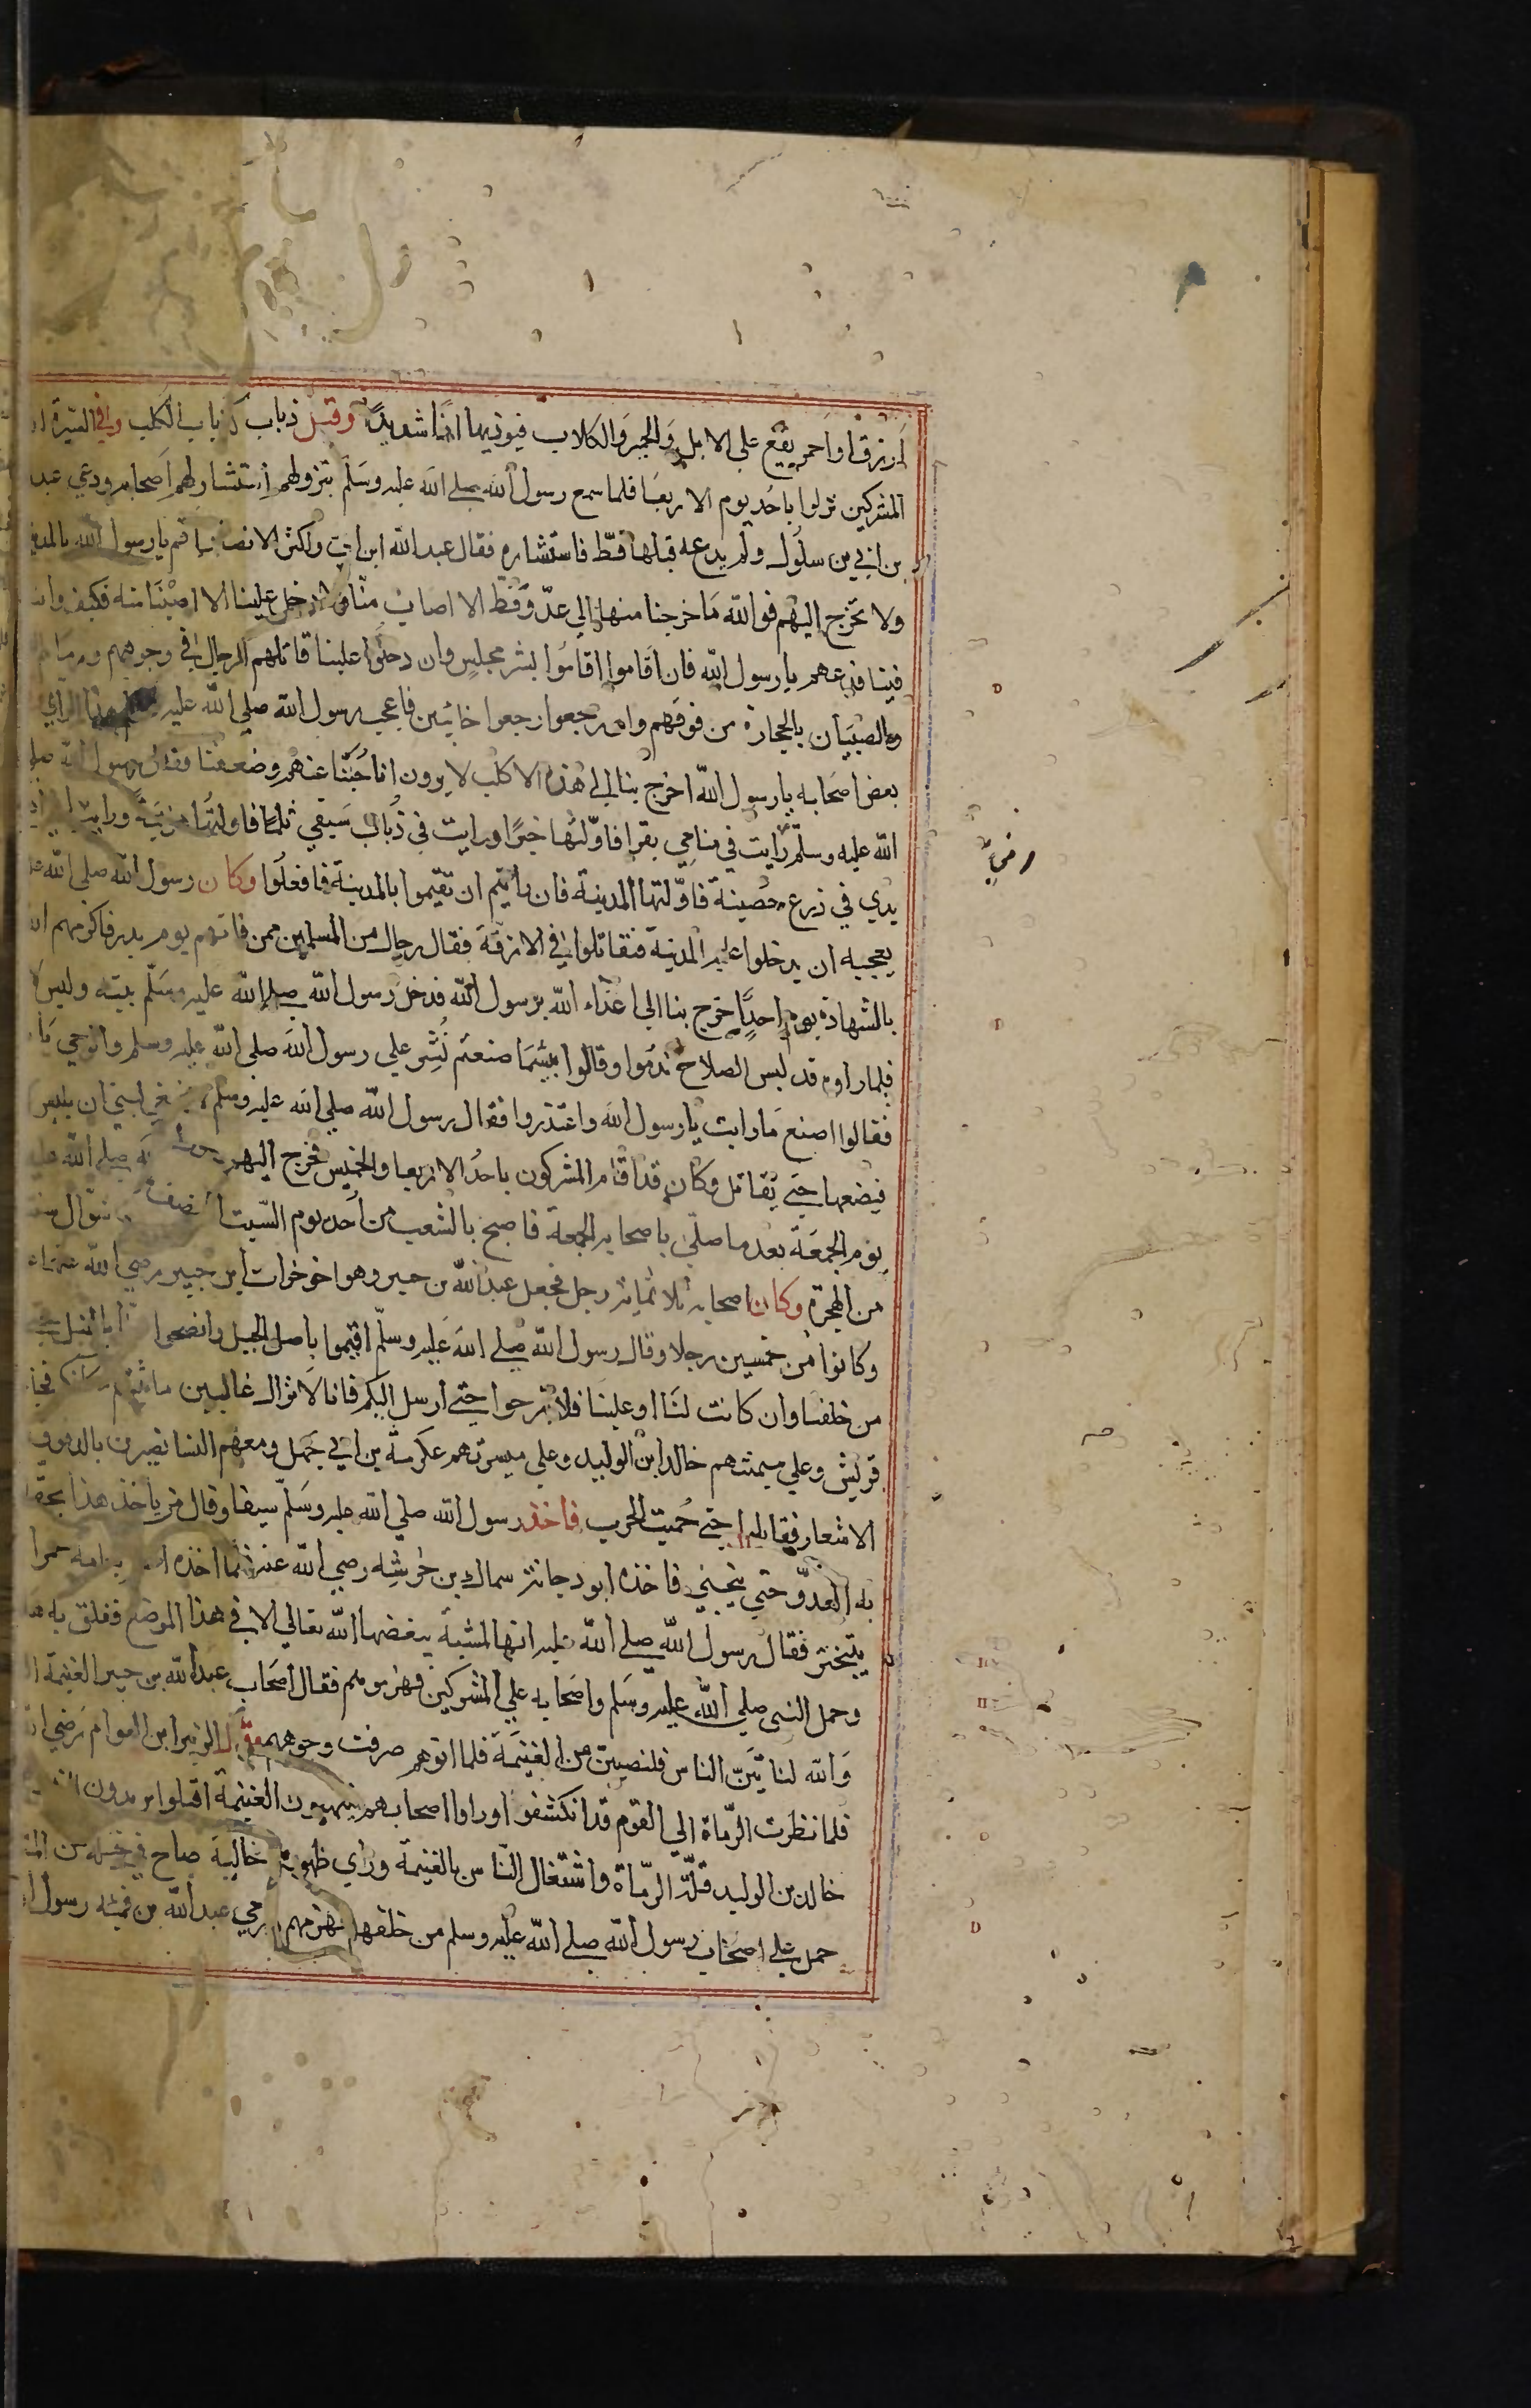 أزرق او احمر يقع على الابل والحمير والكلاب فيوذيها اذا شديدا وقيل ذباب كذباب الكلب وفي السيرة ان
المشركين نزلوا باحد يوم الاربعا فلما سمع رسول الله صلى الله عليه وسلم بنزولهم استشار لهم اصحابه ودعي عبد
بن ابي بن سلول ولم يدعه قبلها قط فاستشاره فقال عبد الله ابن ابي واكثر الانصار اقم يا رسول الله بالمدينة
ولا تخرج اليهم فوالله ما خرجنا منها الي عدو قط الا اصاب منا ولا دخل علينا الا اصبنا منه فكيف وانت
فينا فدعهم يا رسول الله فان اقاموا اقاموا بشر مجلس وان دخلوا علينا قاتلهم الرجال في وجوههم ورماهم
والصبيان بالحجارة من فوقهم وان رجعوا رجعوا خائبين فاعجب رسول الله صلي الله عليه هذا الراي
بعض اصحابه يا رسول الله اخرج بنا الي هذه الاكلب لا يرون انا جبنا عنهم وضعفنا فقال رسول الله صلي
الله عليه وسلم رايت في منامي بقرا فاولتها خيرا ورايت في ذباب سيفي ثلما فاولتها هزيمة ورايت
رضي
يدي في ذرع حصينة فاولتها المدينة فان رايتم ان تقيموا بالمدينة فافعلوا وكان رسول الله صلي الله عليه
يعجبه ان يدخلوا عليه المدينة فنقاتلوا في الازقة فقال رجال من المسلمين ممن فاتهم يوم بدر فاكرمهم الله
بالشهادة يوم احد اخرج بنا الي اعداء الله يرسول الله فدخل رسول الله صلي الله عليه وسلم بيته ولبس
فلما راوه قد لبس الصلاح ندموا وقالوا بيئسما صنعتم نشر علي رسول الله صلي الله عليه وسلم والوحي يا
فقالوا اصنع ما رايت يا رسول الله واعتذروا فقال رسول الله صلي الله عليه وسلم لا ينبغي لنبي ان يلبس
فيضعها حتي يقاتل وكان قد اقام المشركون باحد الاربعا والخميس فخرج اليهم صلي الله عليه
يوم الجمعة بعد ما صلي باصحابه الجمعة فاصبح بالشعب من احد يوم السبت النصف شوال سنة
من الهجرة وكان اصحابه ثلاثمائة رجل فجعل عبد الله بن جبير وهو اخو خوات ابن جبير رضي الله عنهما
وكانوا من خمسين رجلا وقال رسول الله صلي الله عليه وسلم اقيموا باصل الجبل وانضحوا بالنبل حتي
من خلفنا وان كانت لنا او علينا فلا تبرحوا حتي ارسل اليكم فانا لا نزال غالبين ما ثبتم
قريش وعلي ميمنتهم خالد ابن الوليد وعلي ميسرتهم عكرمة بن ابي جهل ومعهم النسا يضربن بالدفوف
الاشعار فقاتلوا حتي حميت الحرب فاخذ رسول الله صلي الله عليه وسلم سيفا وقال من ياخذ هذا بحقه
به العدو حتي ينحني فاخذه ابو دجانة سماك بن خرشه رضي الله عنه فلما اخذه حمرا
يتبختر فقال رسول الله صلي الله عليه انها لمشية يبغضها الله تعالي الا في هذا الموضع ففلق به
وحمل النبي صلي الله عليه وسلم واصحابه علي المشركين فهزموهم فقال اصحاب عبد الله بن جبير الغنيمة
والله لناتين الناس فلنصيبن من الغنيمة فلما اتوهم صرفت وجوههم الزبير ابن العوام رضي
فلما نظرت الرماة الي القوم قد انكشفوا وراوا اصحابهم ينهبون الغنيمة اقبلوا يريدون
خالد بن الوليد قلة الرماة واشتغال الناس بالغنيمة وراي ظهورهم خالية صاح في خيله من
حمل علي اصحاب رسول الله صلي الله عليه وسلم من خلفهم فهزمهم رمي عبد الله بن قمئه رسول